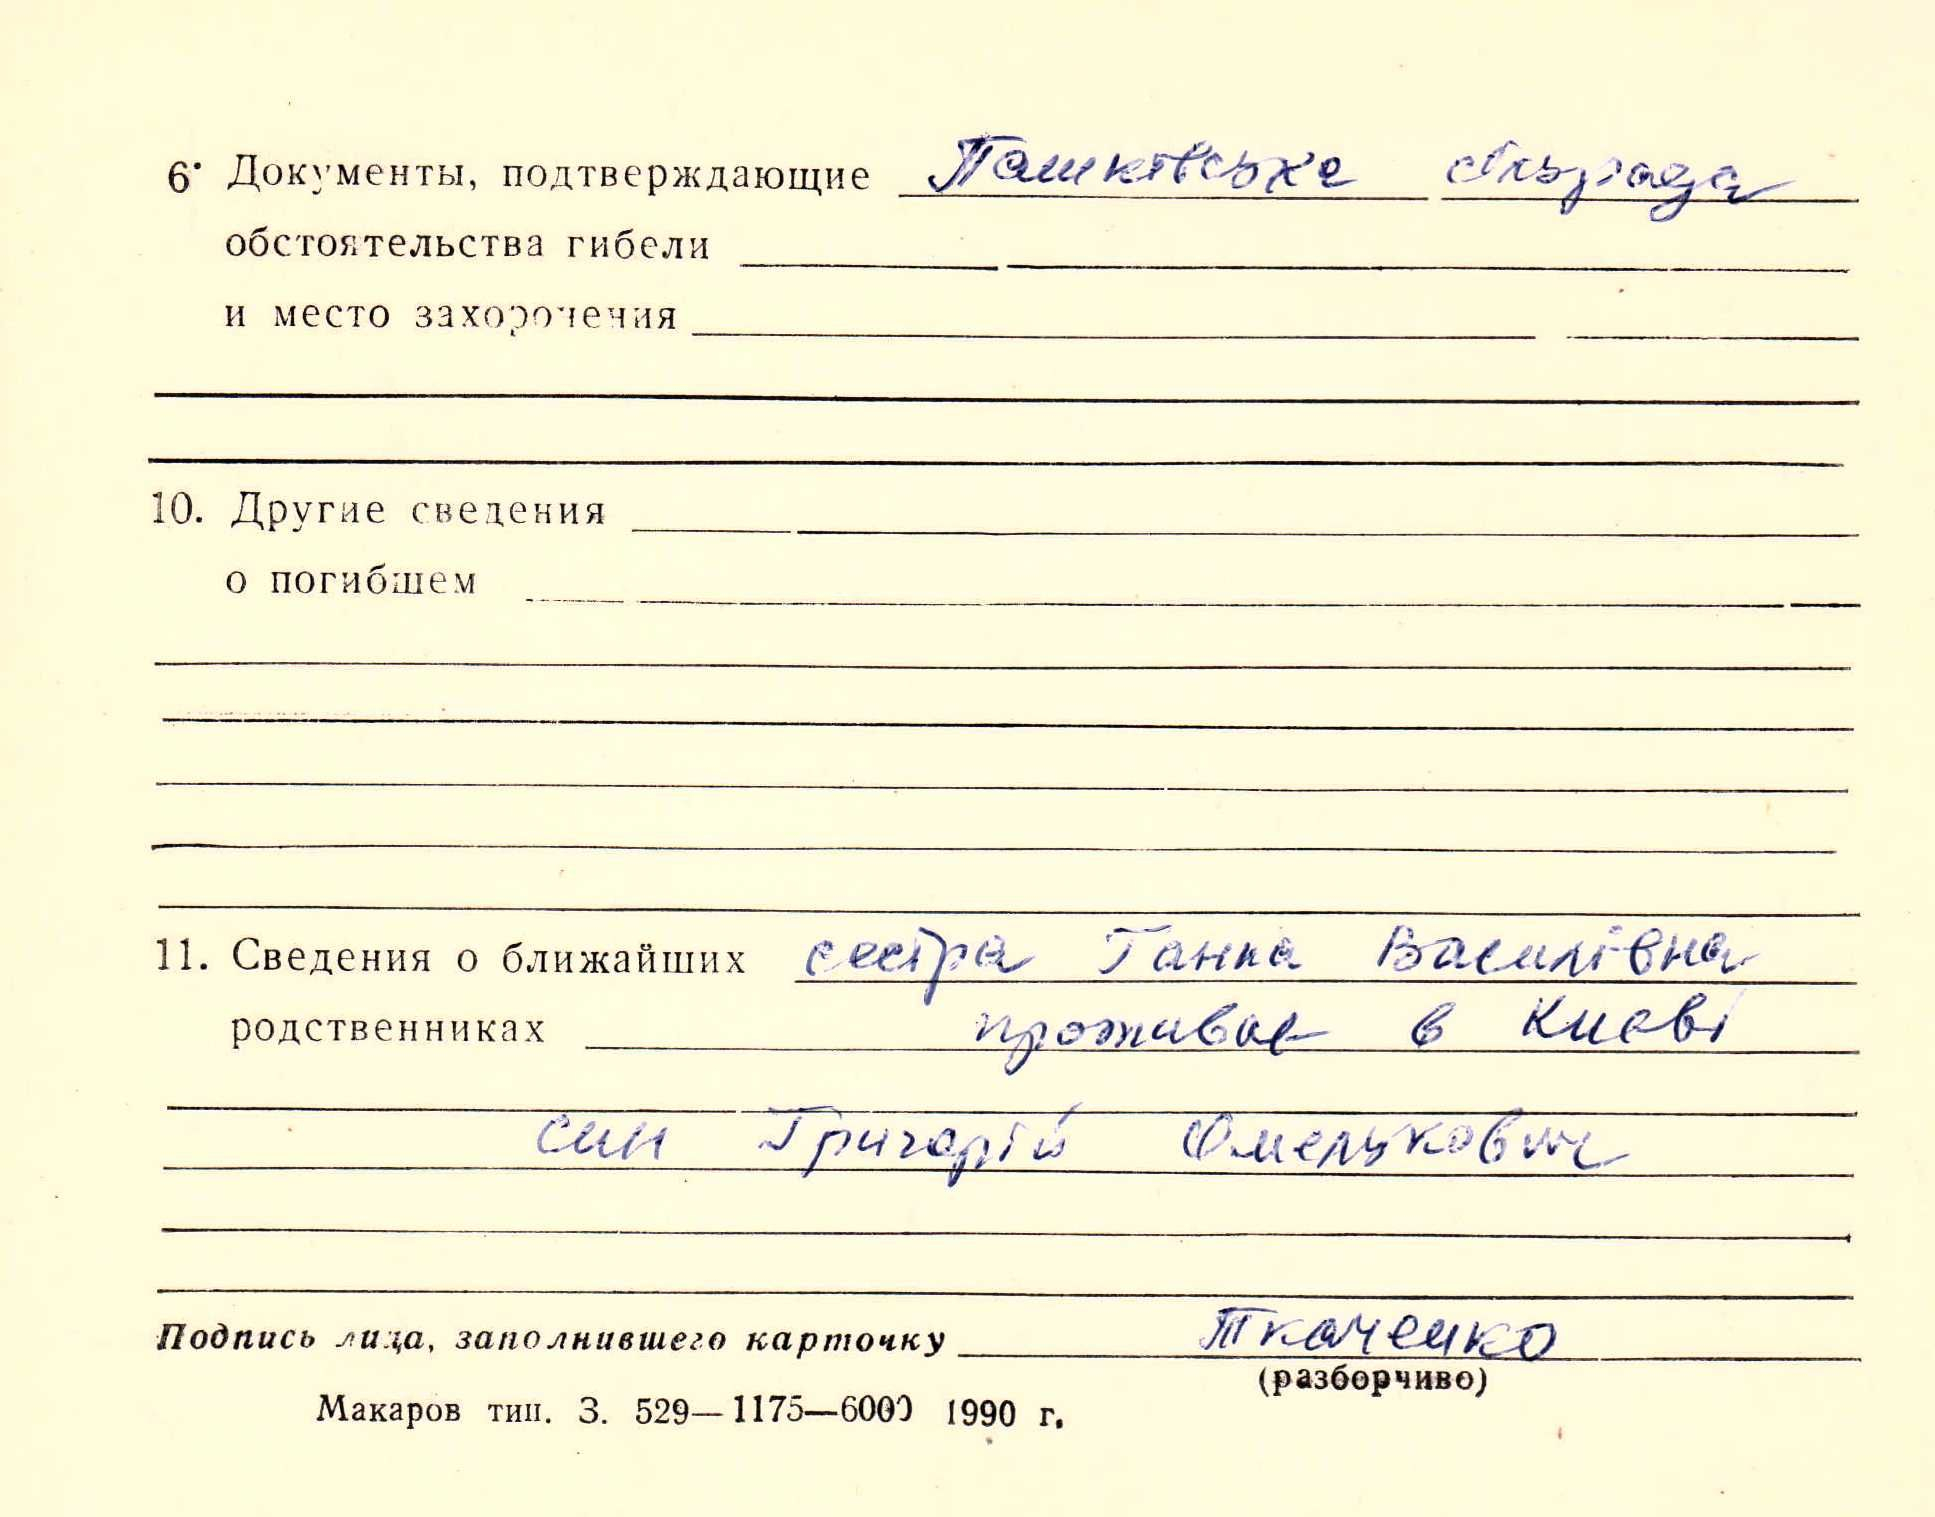 6. Документы, подтверждающие Пашківська сільрада
обстоятельства гибели
и место захоронения
10. Другие сведения
о погибшем
11. Сведения о ближайших сестра Ганна Василівна
родственниках проживає в Києві
син Григорій Омелькович
Подпись лица, заполнившего карточку Ткаченко
(разборчиво)
Макаров тип. З. 529—1175—6000 1990 г.